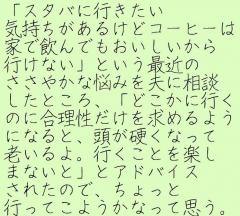 「スタバに行きたい
気持ちがあるけどコーヒーは
家で飲んでもおいしいから
行けない」という最近の
ささやかな悩みを夫に相談
したところ、「どこかに行く
のに合理性だけを求めるよう
になると、頭が硬くなって
老いるよ。行くことを楽し
まないと」とアドバイス
されたので、ちょっと
行ってこようかなって思う。